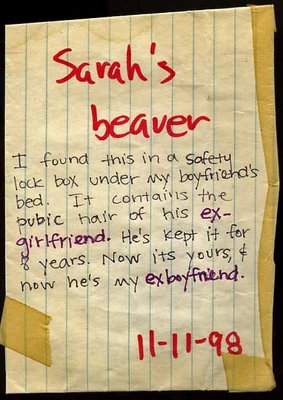 Sarah's
beaver
I found this in a safety
lock box under my boyfriend's
bed. It contains the
pubic hair of his ex-
girlfriend. He's kept it for
8 years. Now its yours, &
now he's my exboyfriend.
11-11-98